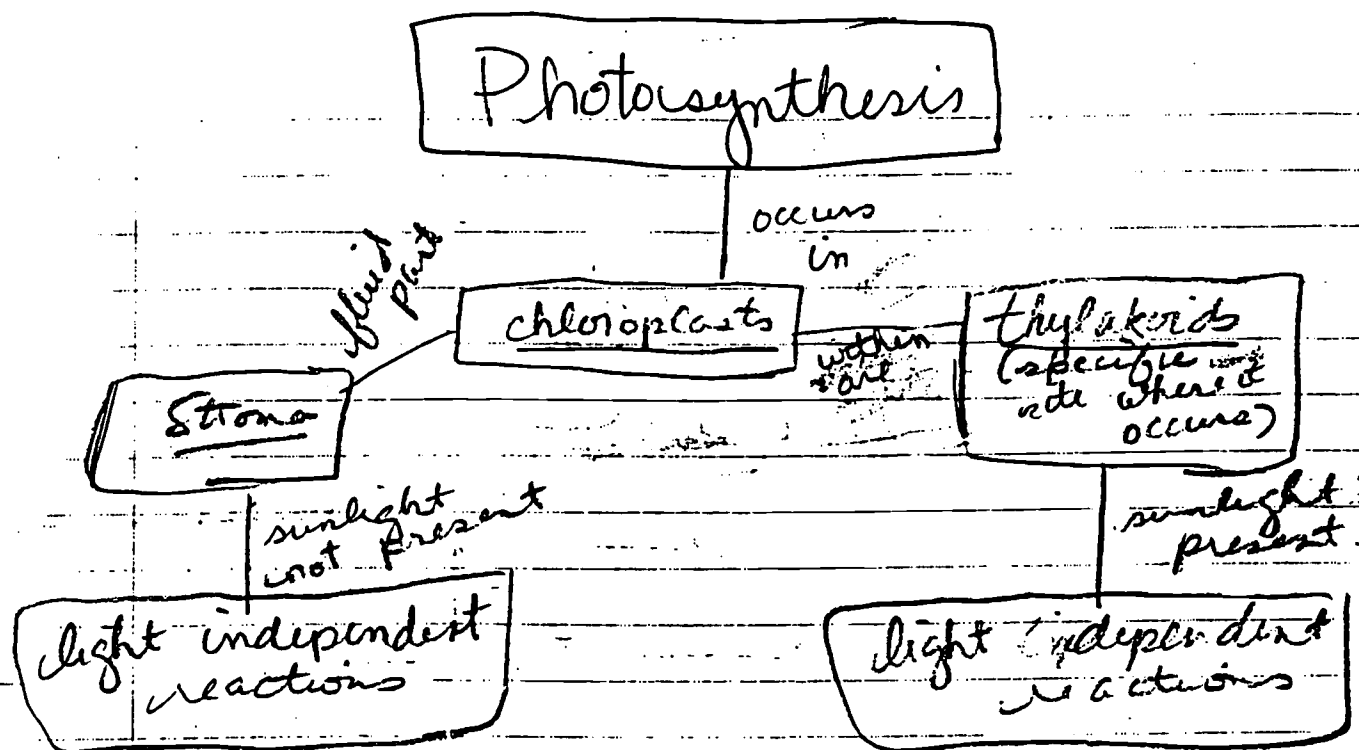 Photosynthesis
occurs
in
fluid
part
chloroplasts
within
are
thylakoids
(specific
site where it
occurs)
Stroma
sunlight
not present
sunlight
present
light independent
reactions
light dependent
reactions